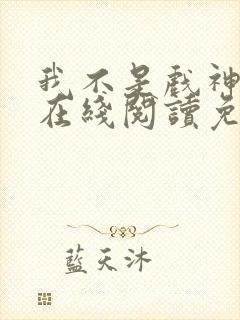 我不是戲神
在綫閱讀免
藍天沐